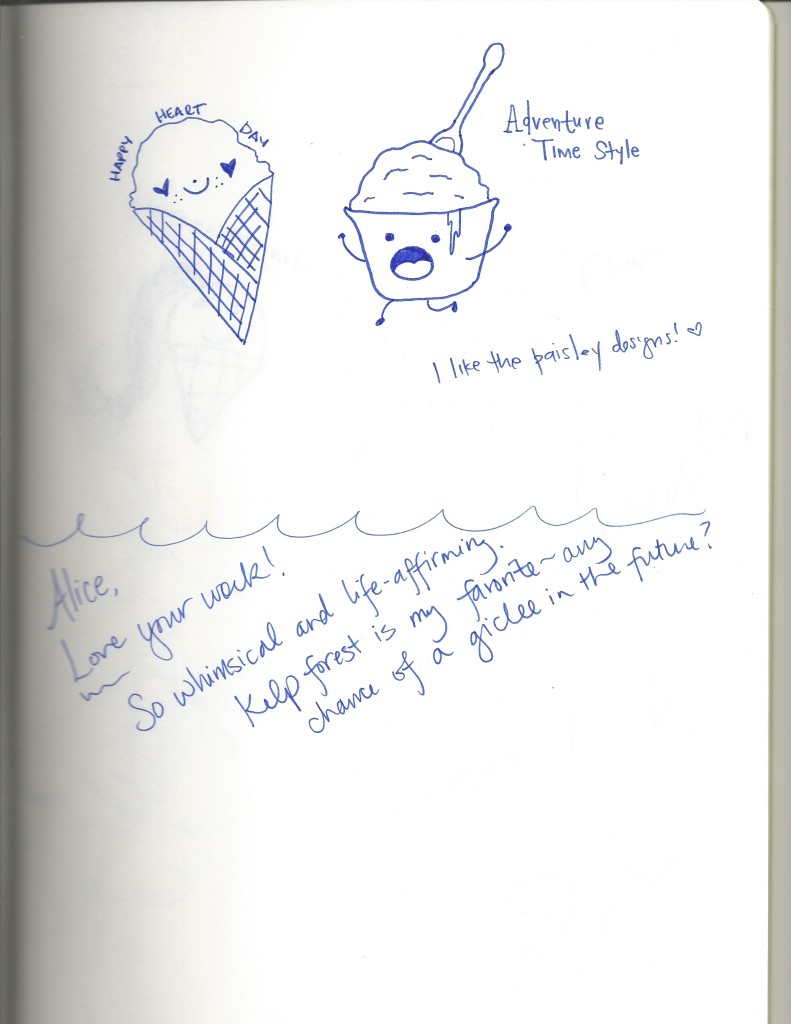 HAPPY HEART DAY
Adventure
Time Style
I like the paisley designs! ♡
Alice,
Love your work!
So whimsical and life-affirming.
Kelp forest is my favorite~any
chance of a giclee in the future?